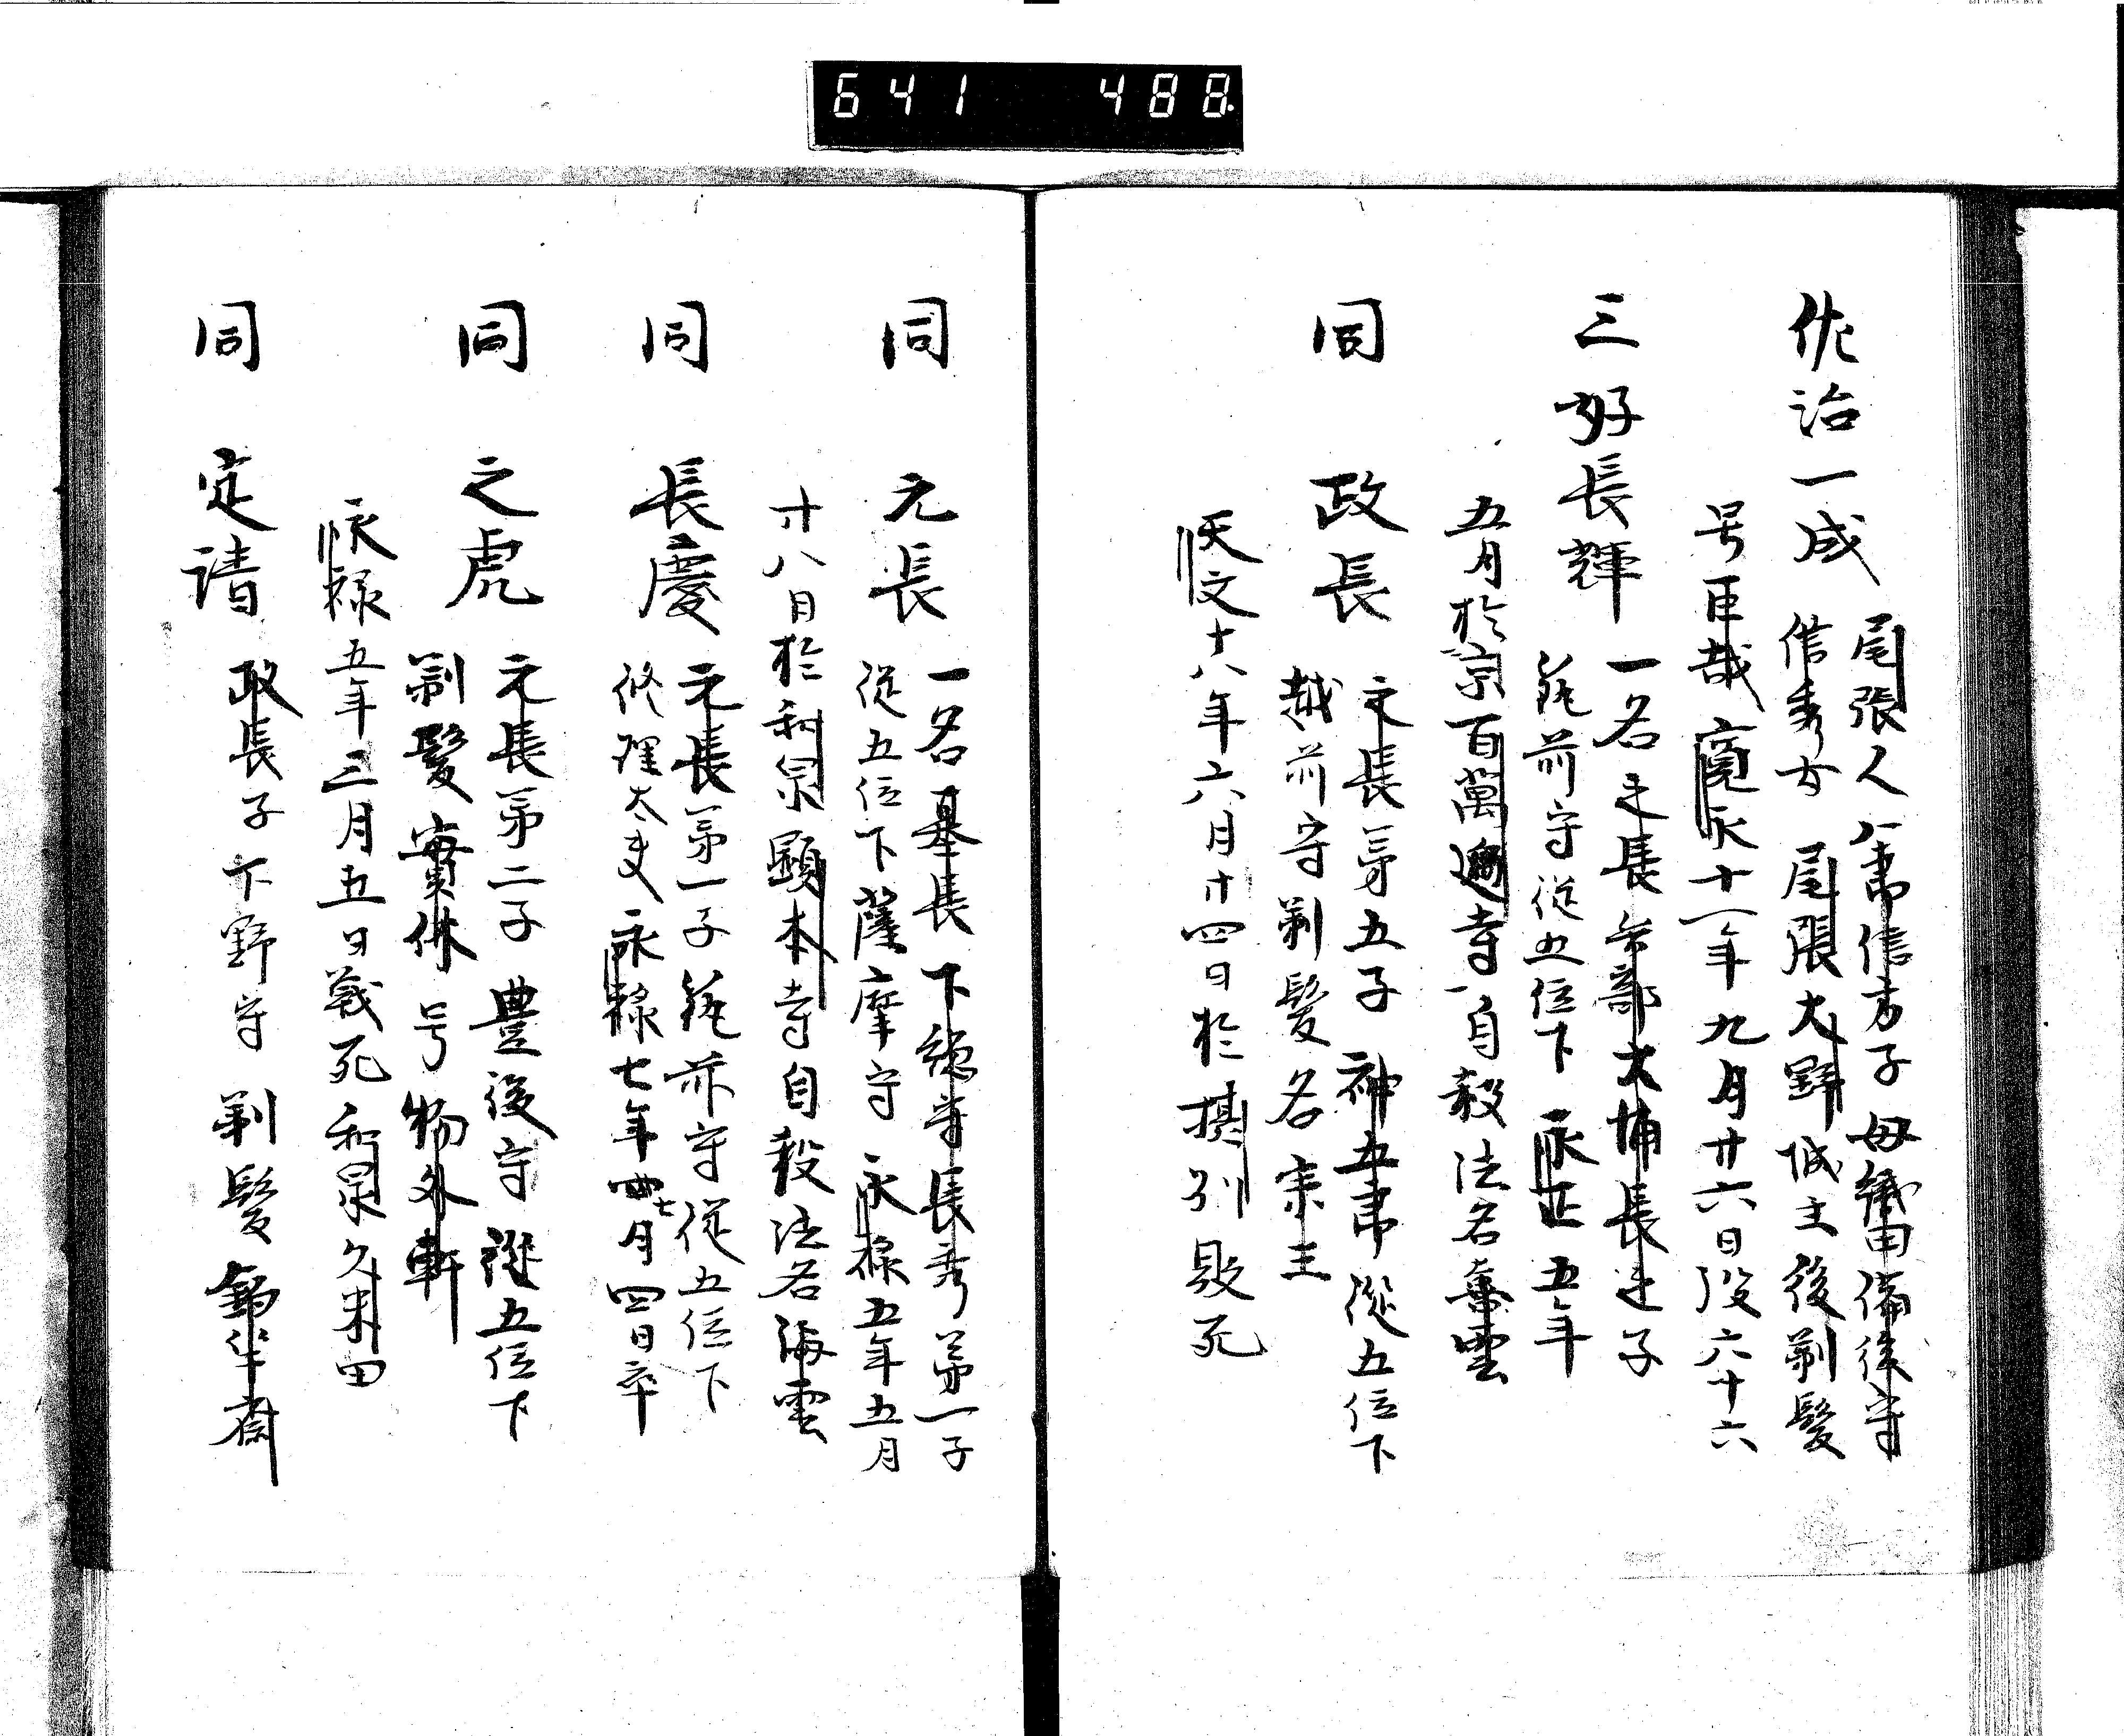 641 488
佐治一成 尾張人八郎信方子母織田備後守
信秀女 尾張大野城主後剃髪
号 哉寛永十一年九月廿六日没六十六
三好長輝 一名之長式部大輔長之子
筑前守従五位下 永正五年
五月於京百萬遍寺自殺法名喜雲
同 政長 之長第五子 神五郎 従五位下
越前守剃髪名宗三
天文十八年六月廿四日於摂列敗死
同 元長 一名基長 下総守長秀第一子
従五位下薩摩守 永禄五年五月
廿八日於和泉顕本寺自殺法名海雲
同 長慶 元長第一子筑前守従五位下
修理大夫 永禄七年四七月四日卒
同 之虎 元長第二子 豊後守 従五位下
剃髪實休号物外軒
永禄五年三月五日戦死和泉久米田
同 定請 政長子下野守 剃髪 釣竿斎